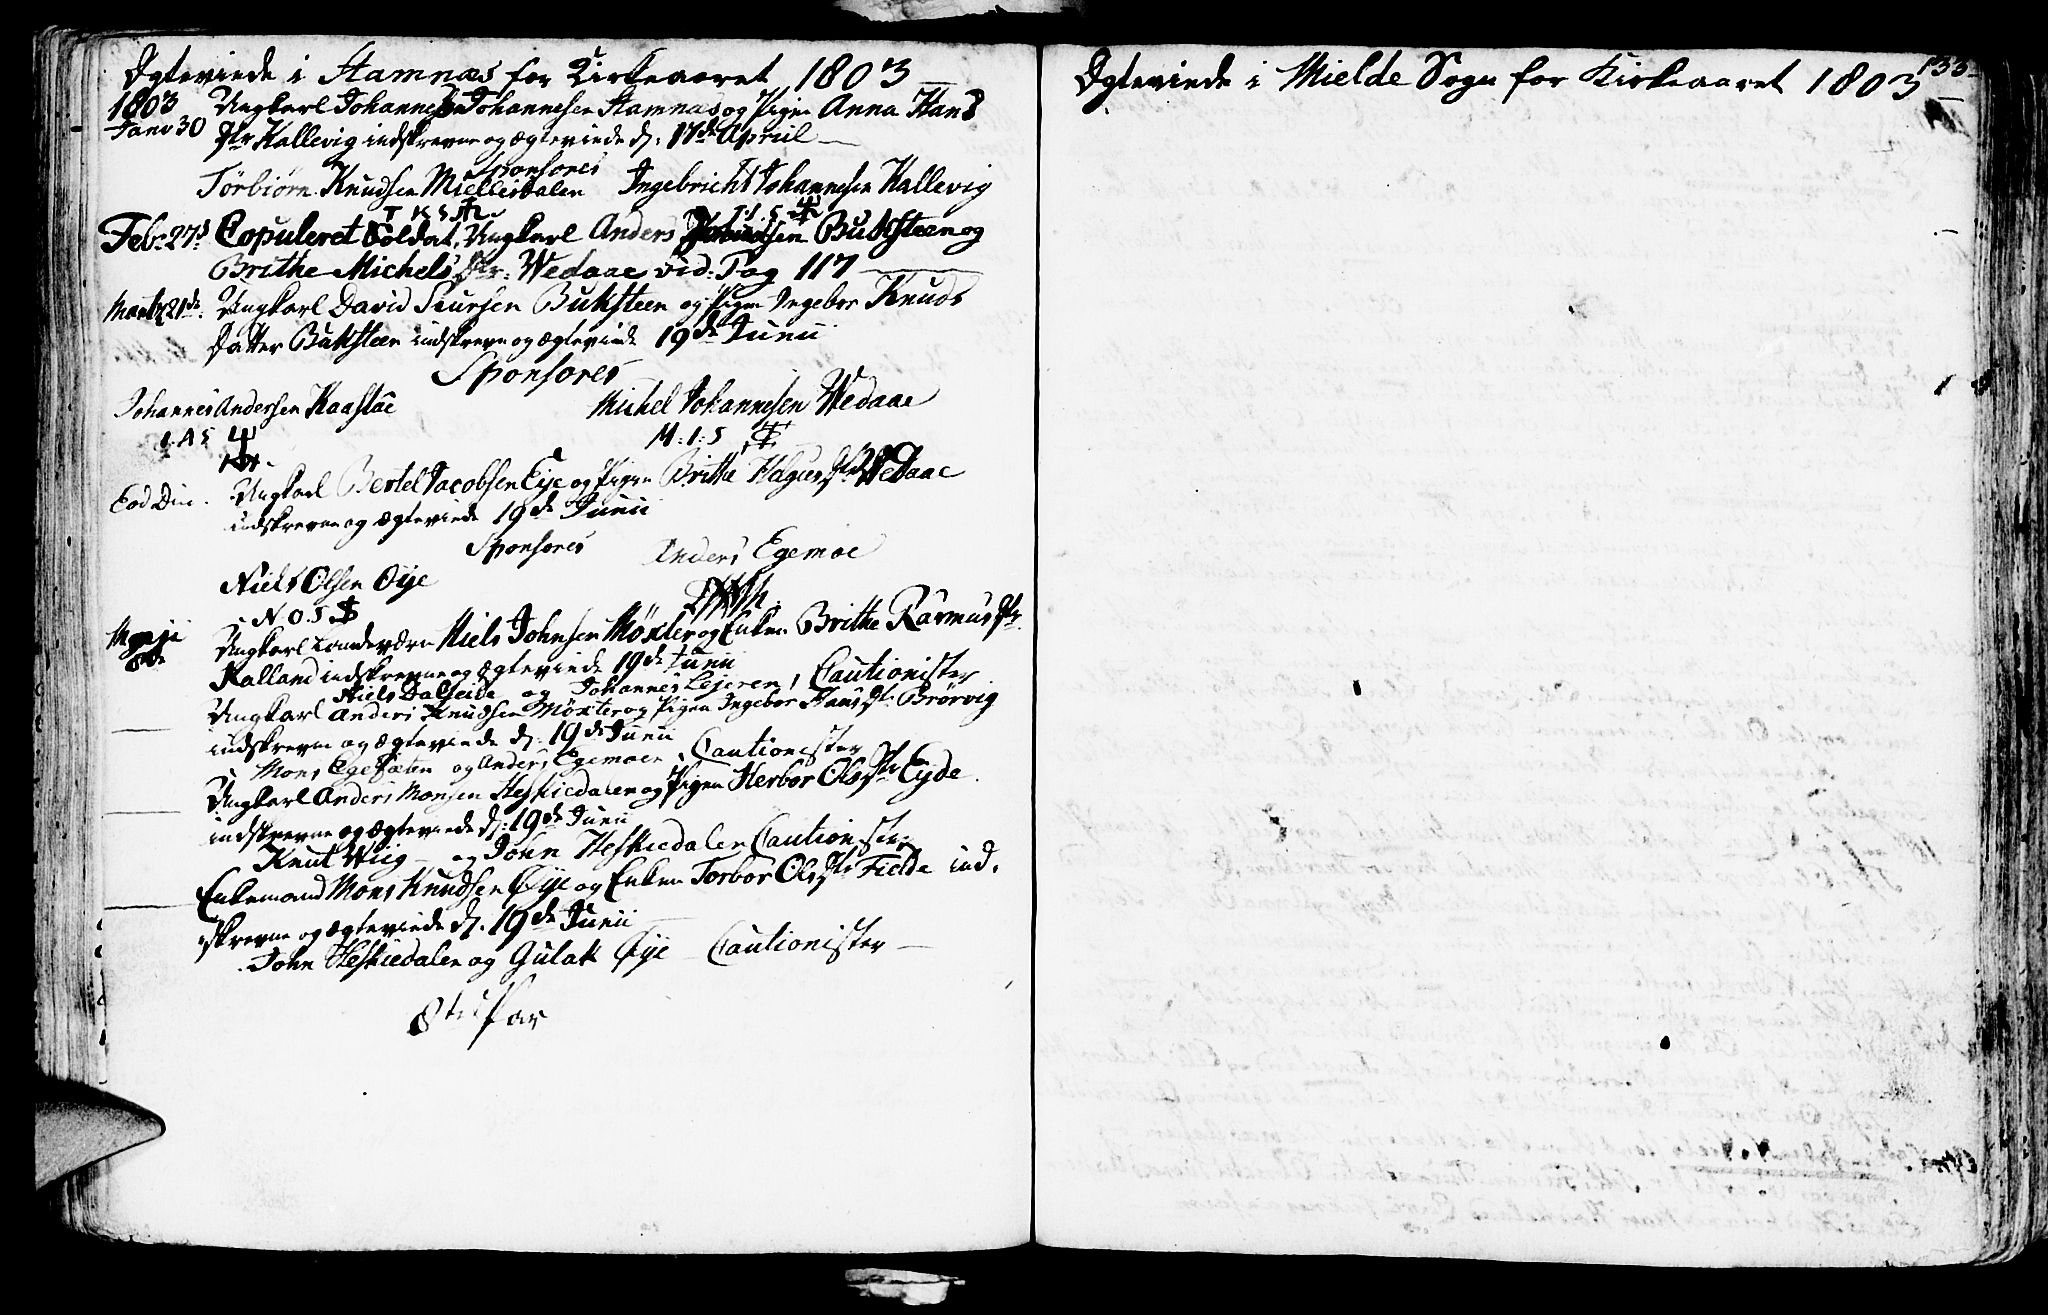 Ægteviede i Hamnæs for Kirkeaaret 1803
1803 Ungkarl Johannes Johannesen Stamnæs og Pigen Anna Hans
Janv 30 Dtr Kallevig indskrevne og ægteviede d: 17de Apriil
Sponsores
Torbiørn Knudsen Miellesdalen Ingebricht Johannesen Kallevig
T K S I I S
Feb: 27d Copuleret Soldat, Ungkarl Anders Buksteen og
Brithe Michels Dtr: Wedaae vid: Pag 117
Martz 21de Ungkarl David Siursen Buksteen og Pigen Ingebor Knuds
Datter Buksteen indskrevne og ægteviede 19de Junii
Sponsores
Johannes Andersen Kaastøe Michel Johannesen Wedaae
I: A S M: I: S
Eod Die. Ungkarl Bertel Jacobsen Eye og Pigen Britha Dtr Wedaae
indskrevne og ægteviede 19de Junii
Sponsores Anders Egemoe
Niels Olsen Øye
N O. S
Maji Ungkarl Landeværn Niels Johnsen Møxter og Enken Brithe Rasmus Dtr
8de Kalland indskrevne og ægteviede 19de Junii
Niels Dalseide og Johannes Lejeren, Cautionister
Ungkarl Anders Knudsen Møxter og Pigen Ingebor Hans Dtr Brørvig
indskrevne og ægteviede d: 19de Junii
Mons Egesæten og Anders Egemoen, Cautionister
Ungkarl Anders Monsen Heskiedalen og Pigen Herbor Ols Dtr Eyde
indskrevne og ægteviede d: 19de Junii
Knut Wiig og John Heskiedalen Cautionister
Enkemand Mons Knudsen Øye og Enken Torbor Ols Dtr Fielde ind-
skrevne og ægteviede d. 19de Junii
John Heskiedalen og Gulak Øye Cautionister
8te Par
133
Ægteviede i Mielde Sogn for Kirkeaaret 1803